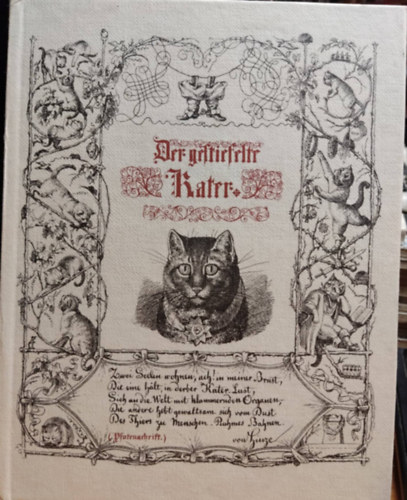 Der gestiefelte
Kater.
Zwei Seelen wohnen, ach! in meiner Brust,
Die eine hält, in derber Kater Lust,
Sich an die Welt mit klammernden Organen;
Die andere hebt gewaltsam sich vom Dust
Des Thiers zu Menschen Ruhmes Bahnen.
von Hinze
(Pfotenschrift.)